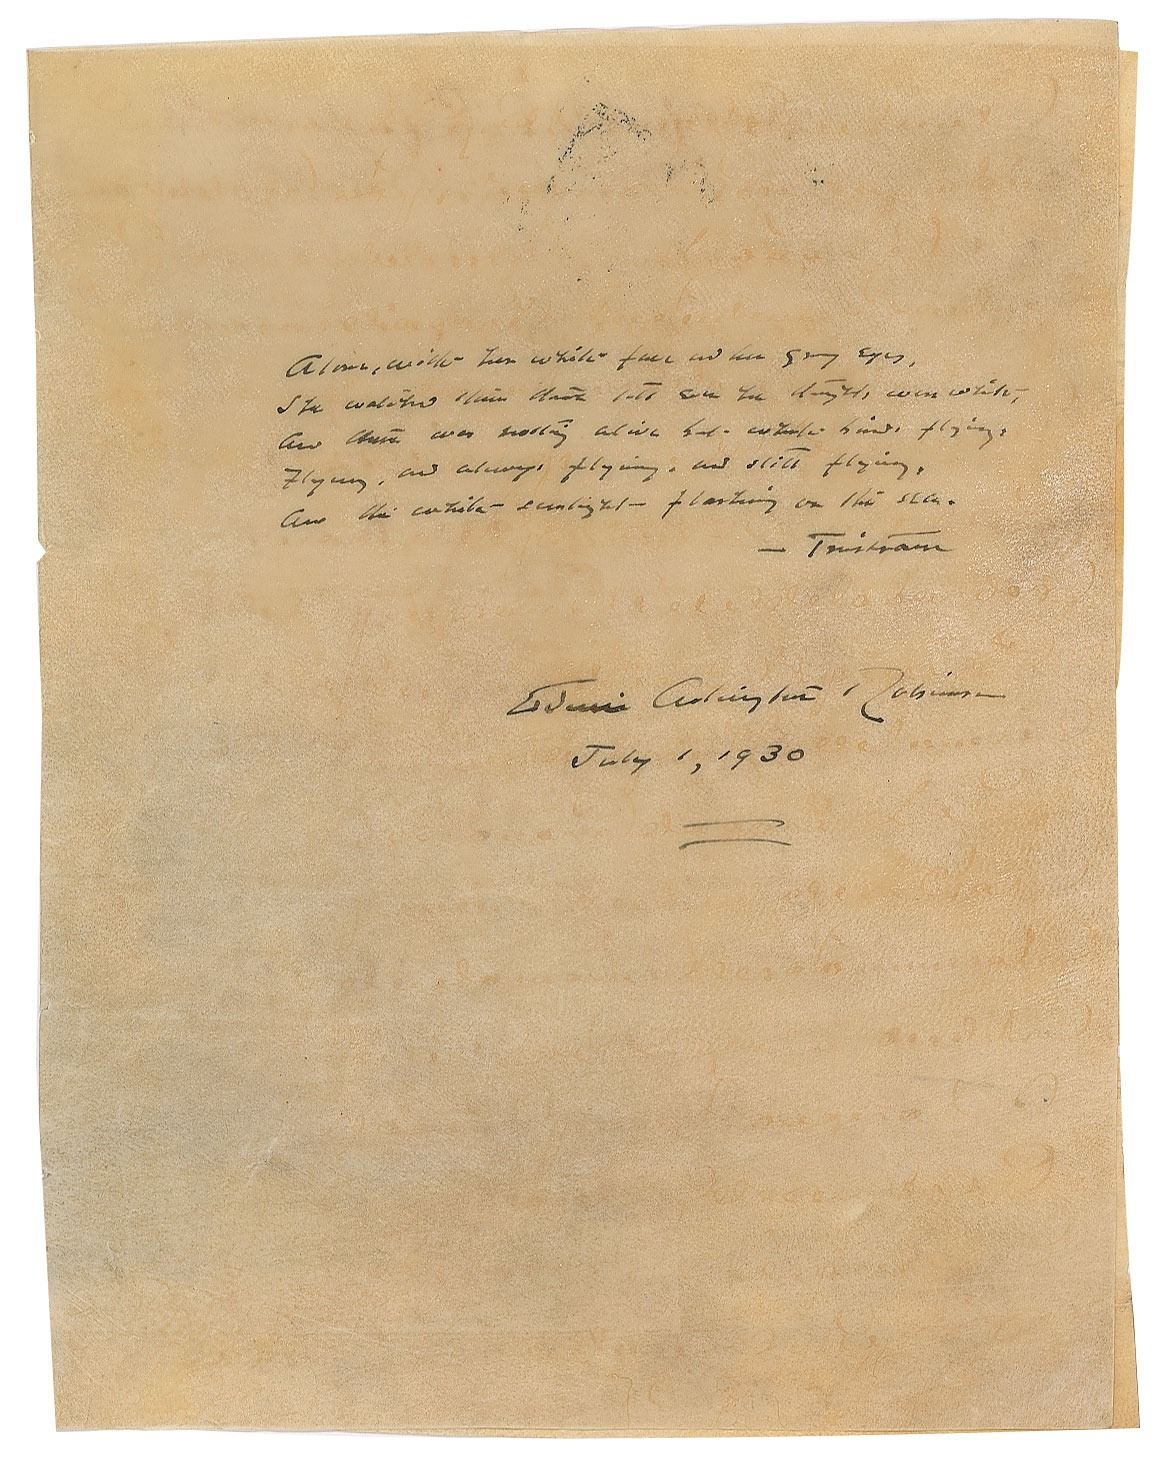 Alone, with her white face and her gray eyes,
She watched them there till even her thoughts were white,
And there was nothing alive but white birds flying,
Flying, and always flying, and still flying,
And the white sunlight flashing on the sea.
— Tristram
Edwin Arlington Robinson
July 1, 1930